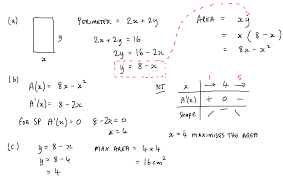 (a)
y
x
PERIMETER = 2x + 2y
2x + 2y = 16
2y = 16 - 2x
y = 8 - x
AREA = xy
= x(8 - x)
= 8x - x²
(b)
A(x) = 8x - x²
A'(x) = 8 - 2x
FOR SP A'(x) = 0 8 - 2x = 0
x = 4
NT
x 1 → 4 → 5
A'(x) + 0 -
shape
x = 4 MAXIMISES THE AREA
(c)
y = 8 - x
y = 8 - 4
= 4
MAX AREA = 4 x 4
= 16 cm²